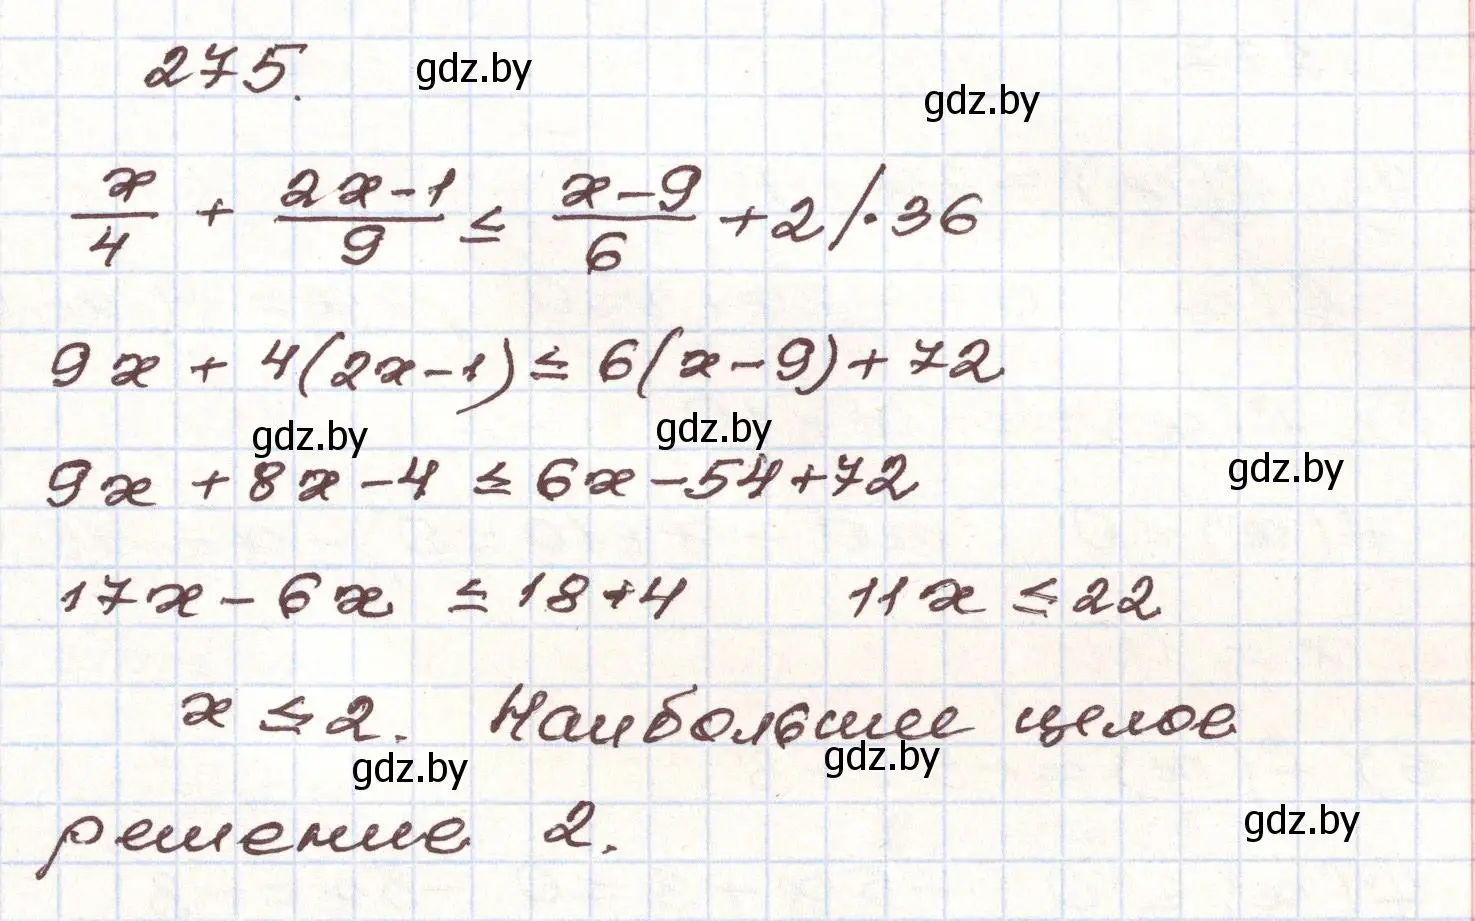 275.
gdz.by
gdz.by
x/4 + (2x-1)/9 ≤ (x-9)/6 + 2 /·36
9x + 4(2x-1) ≤ 6(x-9) + 72
gdz.by
gdz.by
9x + 8x - 4 ≤ 6x - 54 + 72
gdz.by
17x - 6x ≤ 18 + 4 11x ≤ 22
x ≤ 2. Наибольшее целое
gdz.by
gdz.by
решение 2.
gdz.by